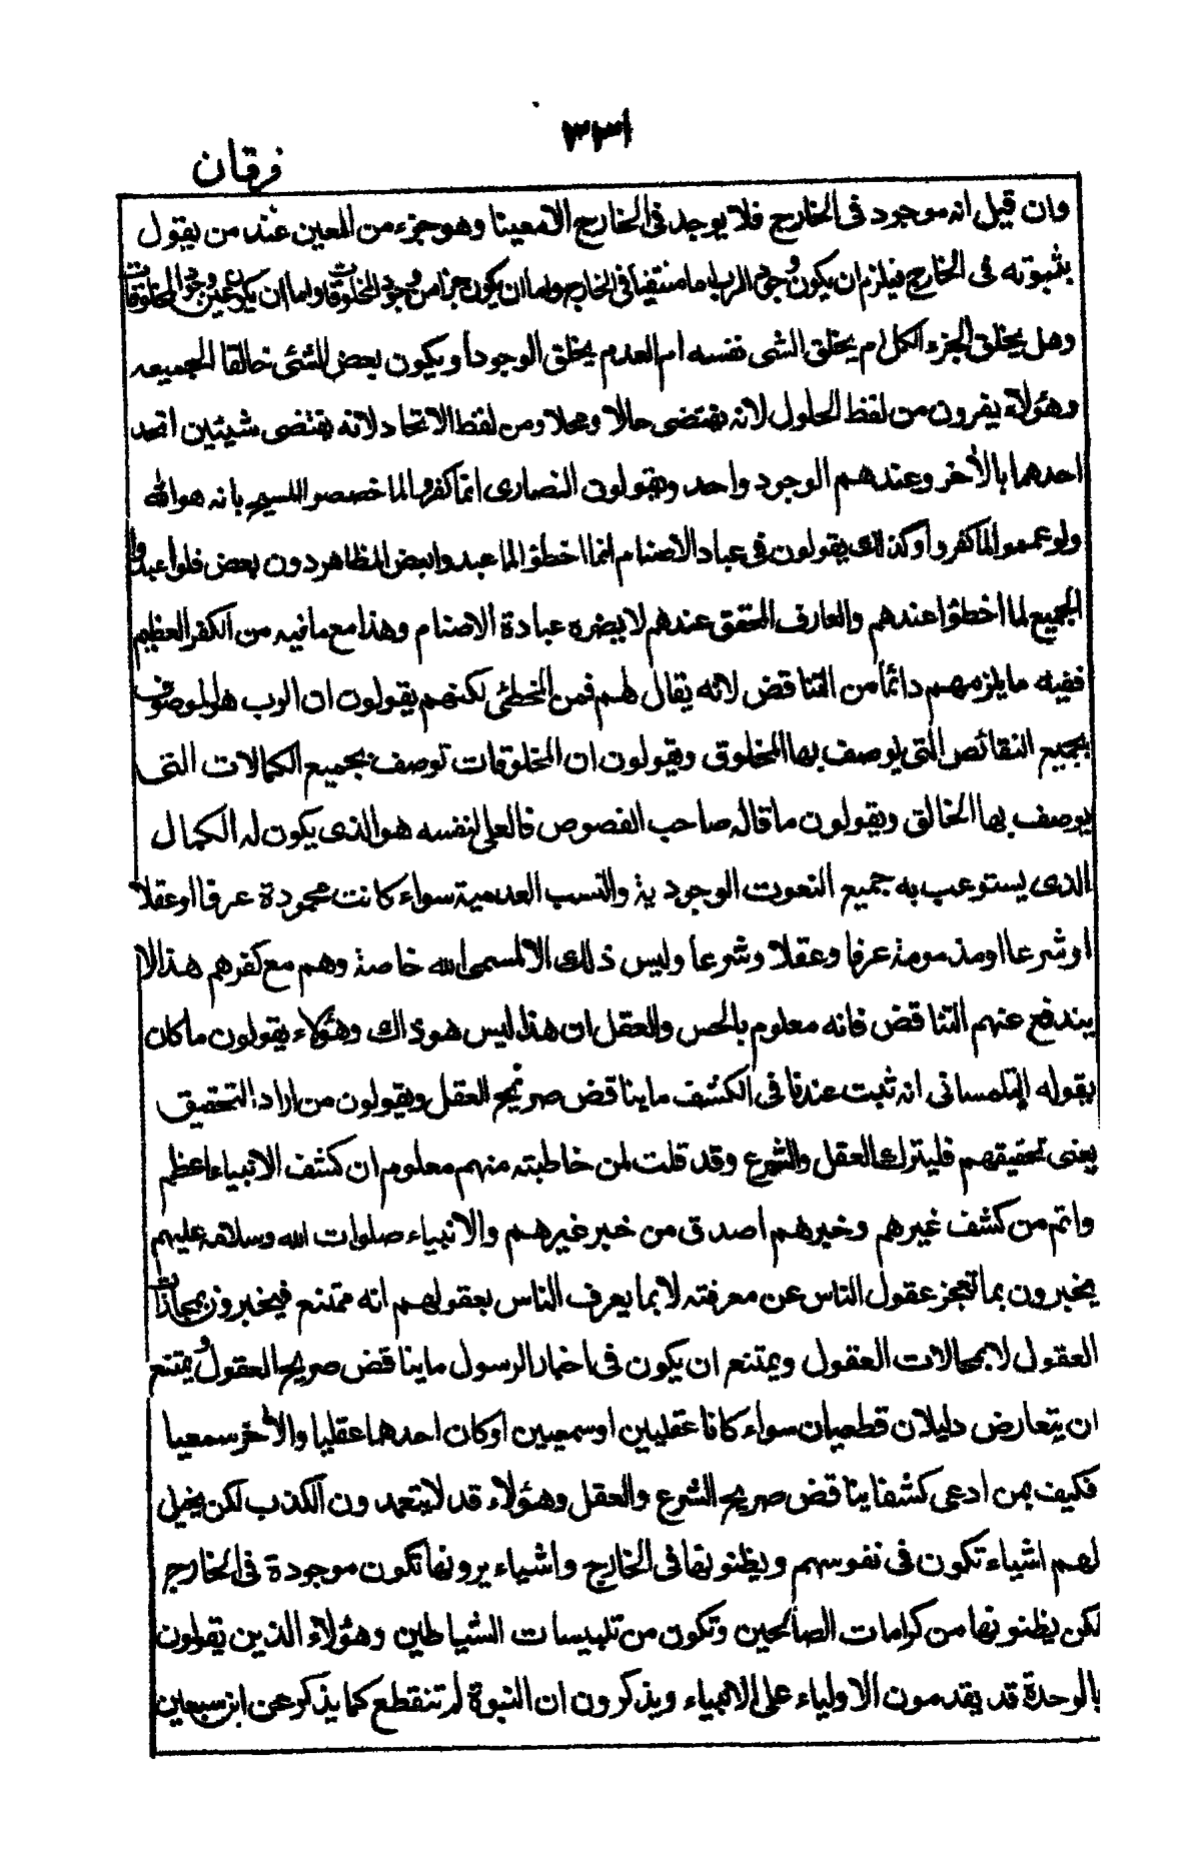 ١٣٣
فرقان
وان قيل انه موجود فى الخارج فلا يوجد فى الخارج الا معينا وهو جزء من المعين عند من يقول
بثبوته فى الخارج فيلزم ان يكون وجود الرب اما منتفيا فى الخارج واما ان يكون جزأ من وجود المخلوقات واما ان يكون عين وجود المخلوقات
وهل يخلق الجزء الكل ام يخلق الشى نفسه ام العدم يخلق الوجود او يكون بعض الشئى خالقا لجميعه
وهئولاء يفرون من لفظ الحلول لانه يقتضى حالا ومحلا ومن لفظ الاتحاد لانه يقتضى شيئين اتحد
احدهما بالأخر وعندهم الوجود واحد ويقولون النصارى انما كفروا لما خصصوا المسيح بانه هو الله
ولو عمموا لما كفروا وكذلك يقولون فى عباد الاصنام انما اخطؤا لما عبدوا بعض المظاهر دون بعض فلو عبدوا
الجميع لما اخطؤا عندهم والعارف المحقق عندهم لا يضره عبادة الاصنام وهذا مع ما فيه من الكفر العظيم
ففيه ما يلزمهم دائماً من التناقض لانه يقال لهم فمن المخطئى لكنهم يقولون ان الرب هو الموصوف
بجميع النقائص التى يوصف بها المخلوق ويقولون ان المخلوقات توصف بجميع الكمالات التى
يوصف بها الخالق ويقولون ما قاله صاحب الفصوص فالعلى لنفسه هو الذى يكون له الكمال
الذى يستوعب به جميع النعوت الوجودية والنسب العدمية سواء كانت محمودة عرفا او عقلا
او شرعا او مذمومة عرفا وعقلا وشرعا وليس ذلك الا لمسمى الله خاصة وهم مع كفرهم هذا لا
يندفع عنهم التناقض فانه معلوم بالحس والعقل ان هذا ليس هو ذاك وهئولاء يقولون ما كان
يقوله التلمسانى انه ثبت عندنا فى الكشف ما يناقض صريح العقل ويقولون من اراد التحقيق
يعنى تحقيقهم فليترك العقل والشرع وقد قلت لمن خاطبته منهم معلوم ان كشف الانبياء اعظم
واتم من كشف غيرهم وخبرهم اصدق من خبر غيرهم والانبياء صلوات الله وسلامه عليهم
يخبرون بما تعجز عقول الناس عن معرفته لا بما يعرف الناس بعقولهم انه ممتنع فيخبرون بمحارات
العقول لا بمحالات العقول ويمتنع ان يكون فى اخبار الرسول ما يناقض صريح العقول ويمتنع
ان يتعارض دليلان قطعيان سواء كانا عقليين او سمعيين او كان احدهما عقليا والأخر سمعيا
فكيف بمن ادعى كشفا يناقض صريح الشرع والعقل وهئولاء قد لا يتعمدون الكذب لكن يخيل
لهم اشياء تكون فى نفوسهم ويظنونها فى الخارج واشياء يرونها تكون موجودة فى الخارج
لكن يظنونها من كرامات الصالحين وتكون من تلبيسات الشياطين وهئولاء الذين يقولون
بالوحدة قد يقدمون الاولياء على الانبياء ويذكرون ان النبوة لم تنقطع كما يذكر عن ابن سبعين